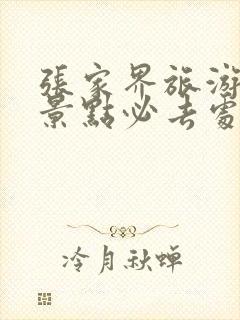 張家界旅游
景點必去處
冷月秋蟬